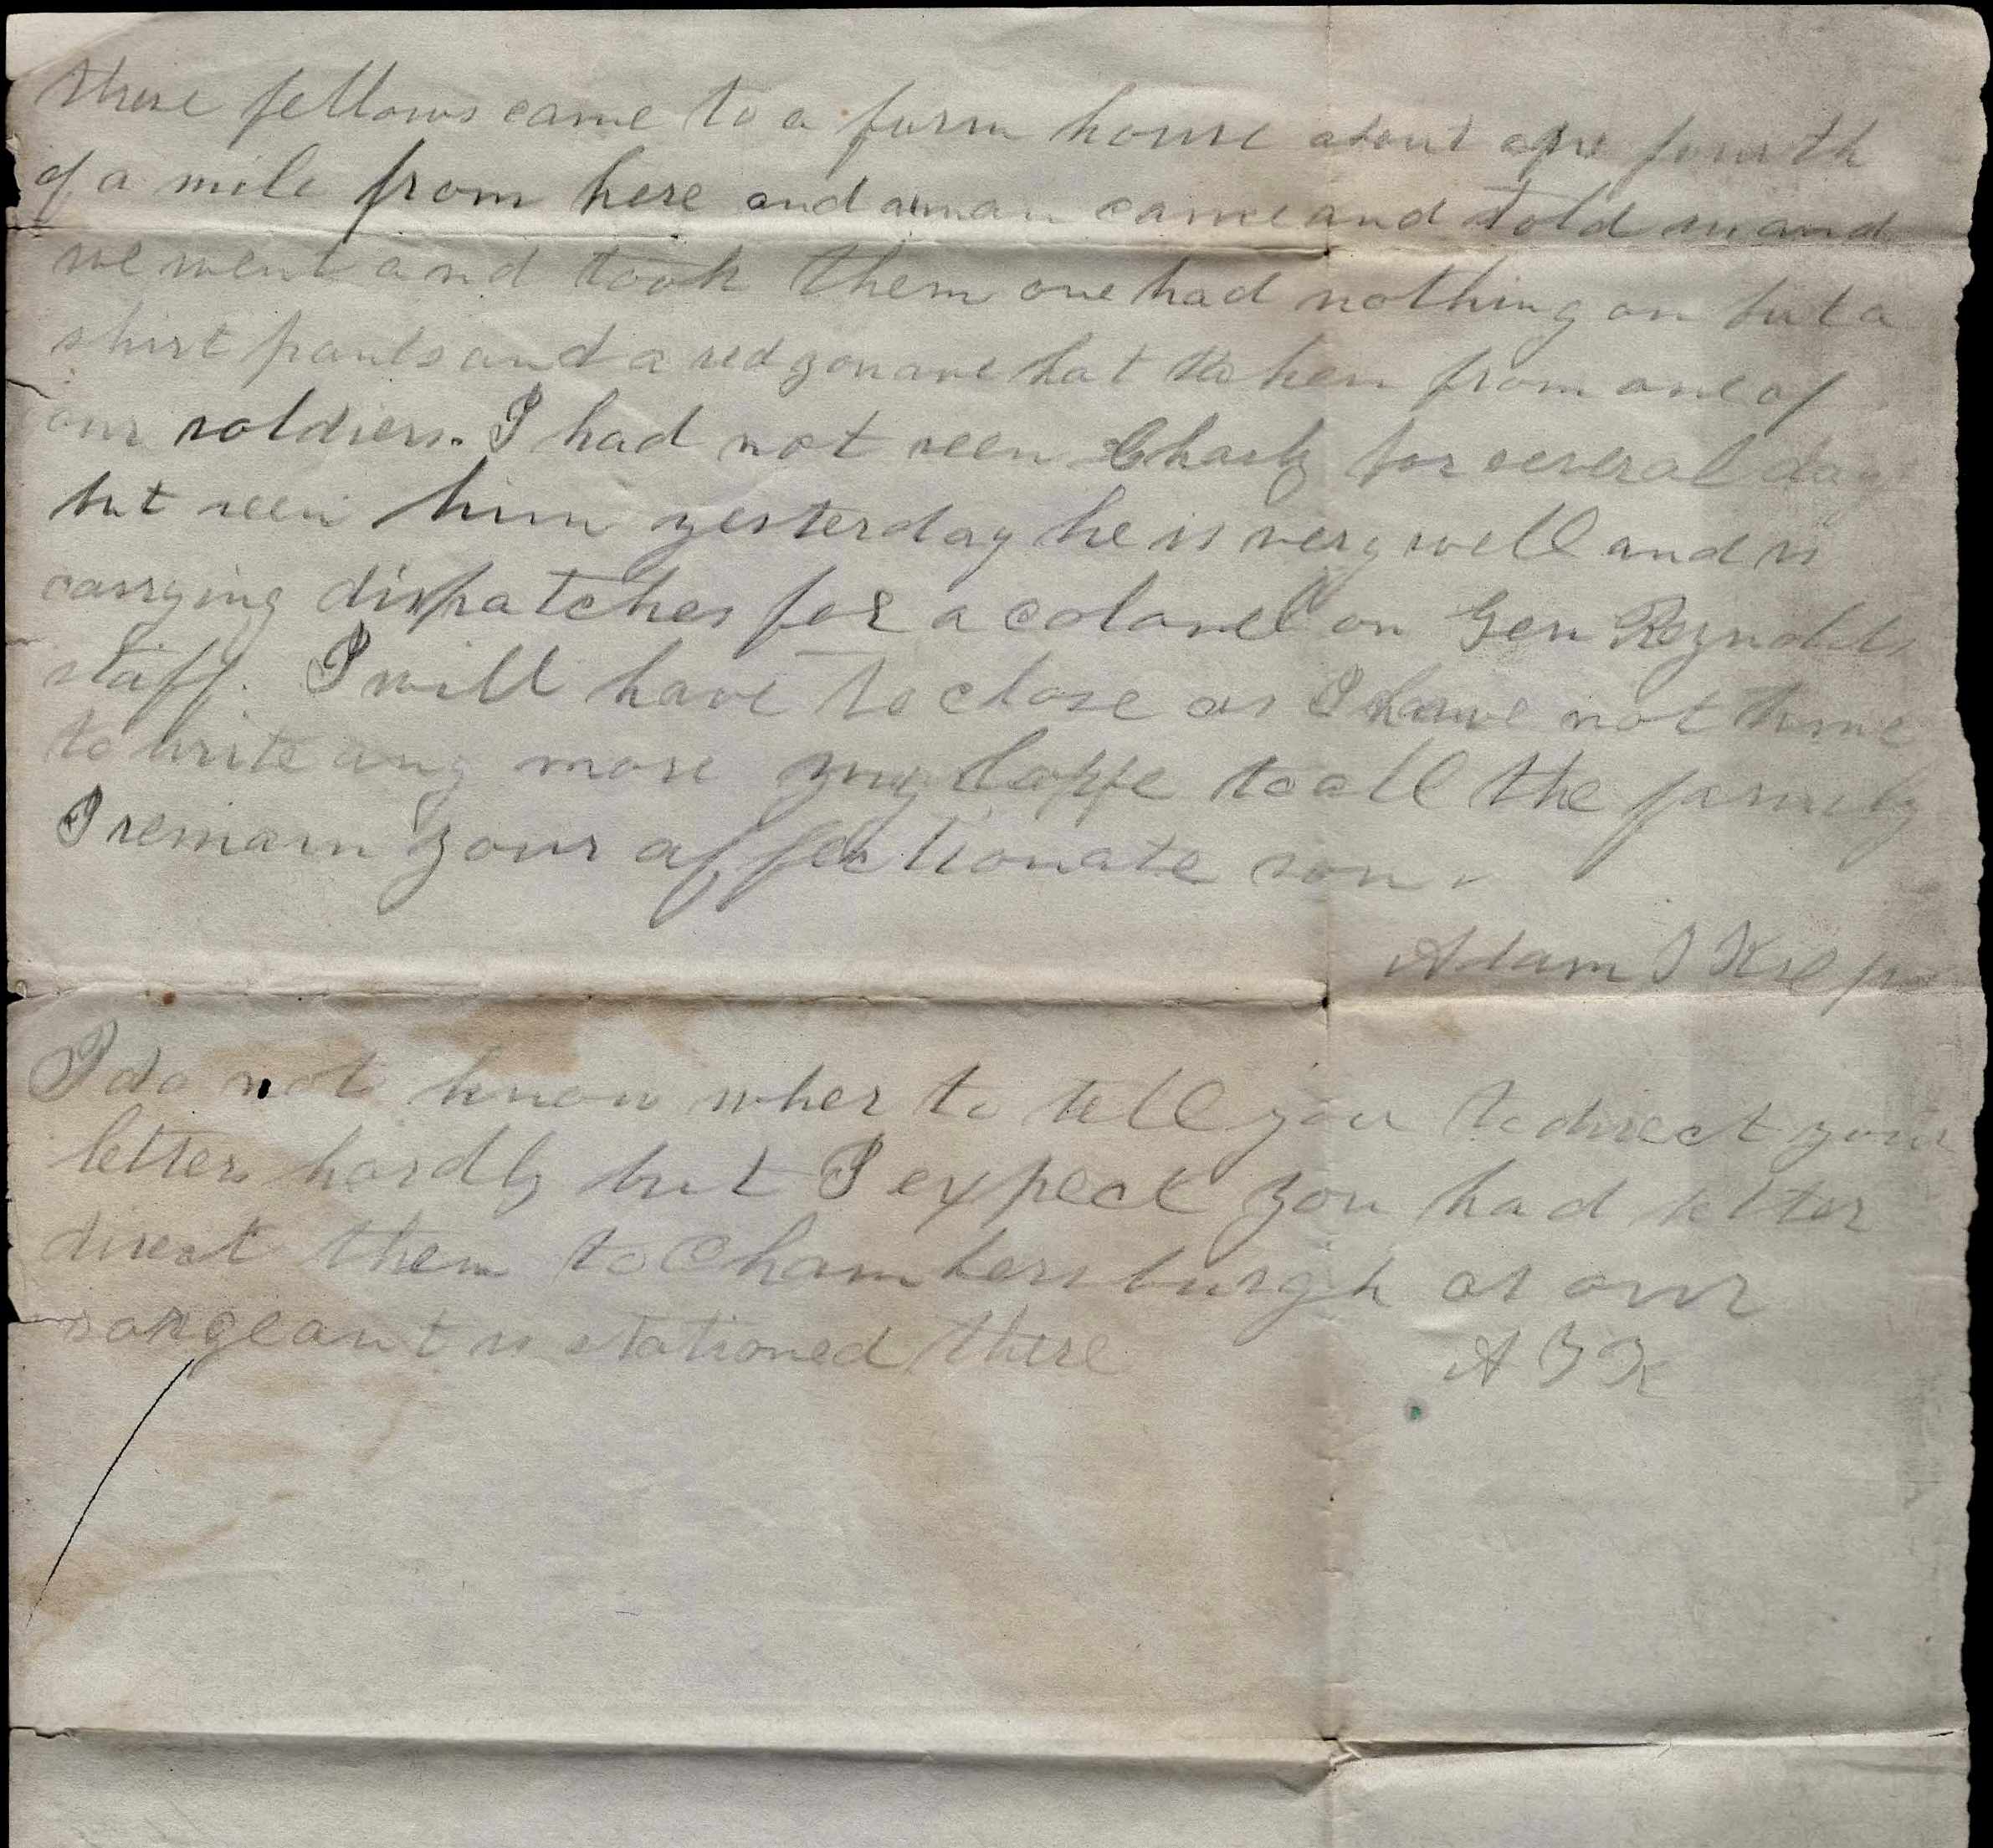 these fellows came to a farm house about one fourth
of a mile from here and a man came and told us and
we went and took them one had nothing on but a
shirt pants and a red zouave hat taken from one of
our soldiers. I had not seen Charly for several days
but seen him yesterday he is very well and is
carrying dispatches for a colonel on Gen Reynolds
staff. I will have to close as I have not time
to write any more my love to all the family
I remain your affectionate son
Adam
I do not know wher to tell you to direct your
letters hardly but I expect you had better
direct them to Chambersburgh as our
sargeant is stationed there
A K